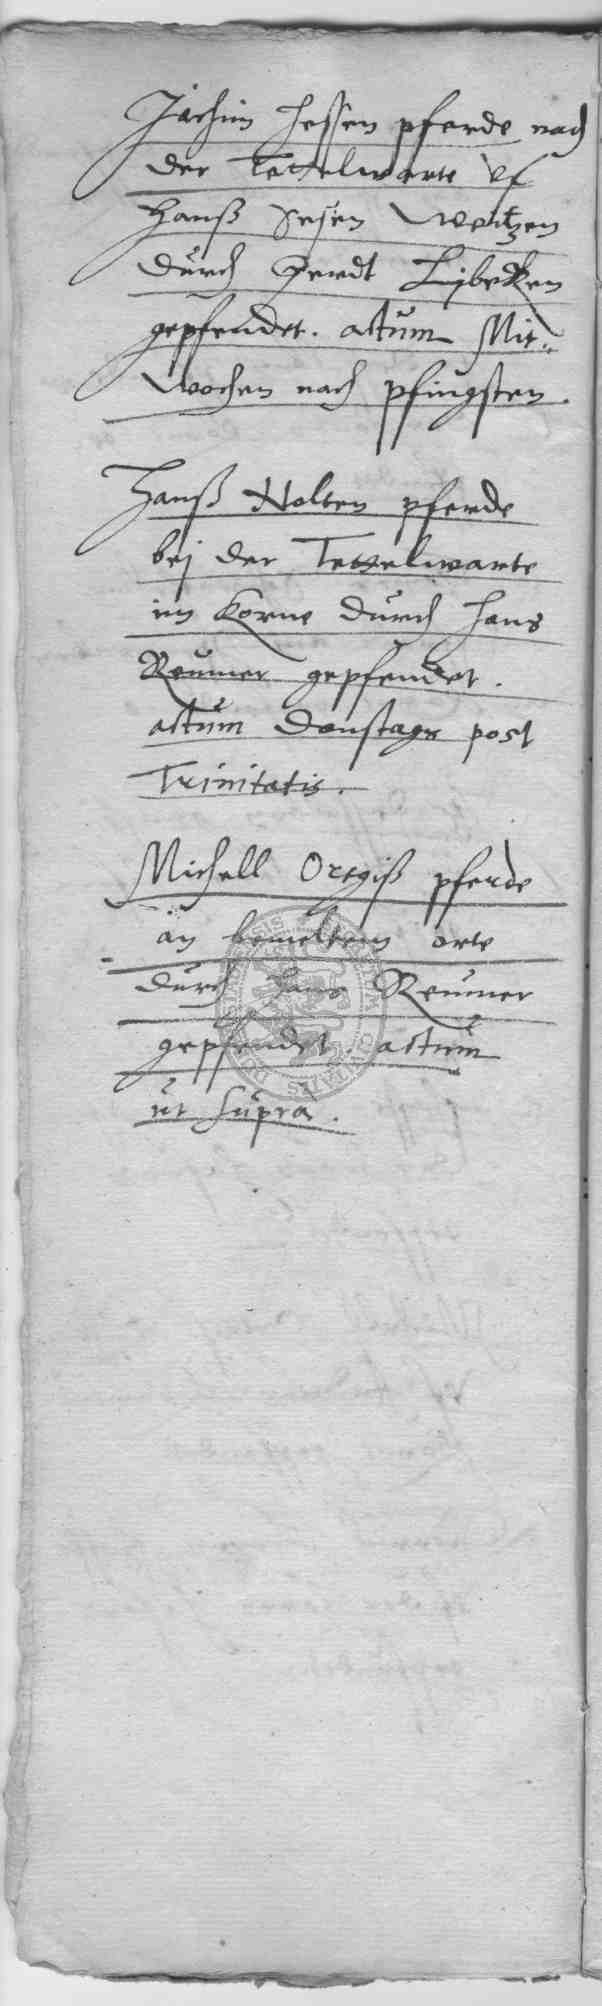 Jachim Hessen pferde nach
der Tettelwarte vf
Hanß Sesen Weitzen
durch Gerdt Lijbeken
gepfendet. actum Mit-
wochen nach pfingsten.
Hanß Nolten pferde
bej der Tettelwarte
im korne durch Hans
Reumer gepfendet.
actum Donstags post
Trinitatis.
Michell Ortgiß pferde
an bemeltem orte
durch Hans Reumer
gepfendet. actum
ut supra.